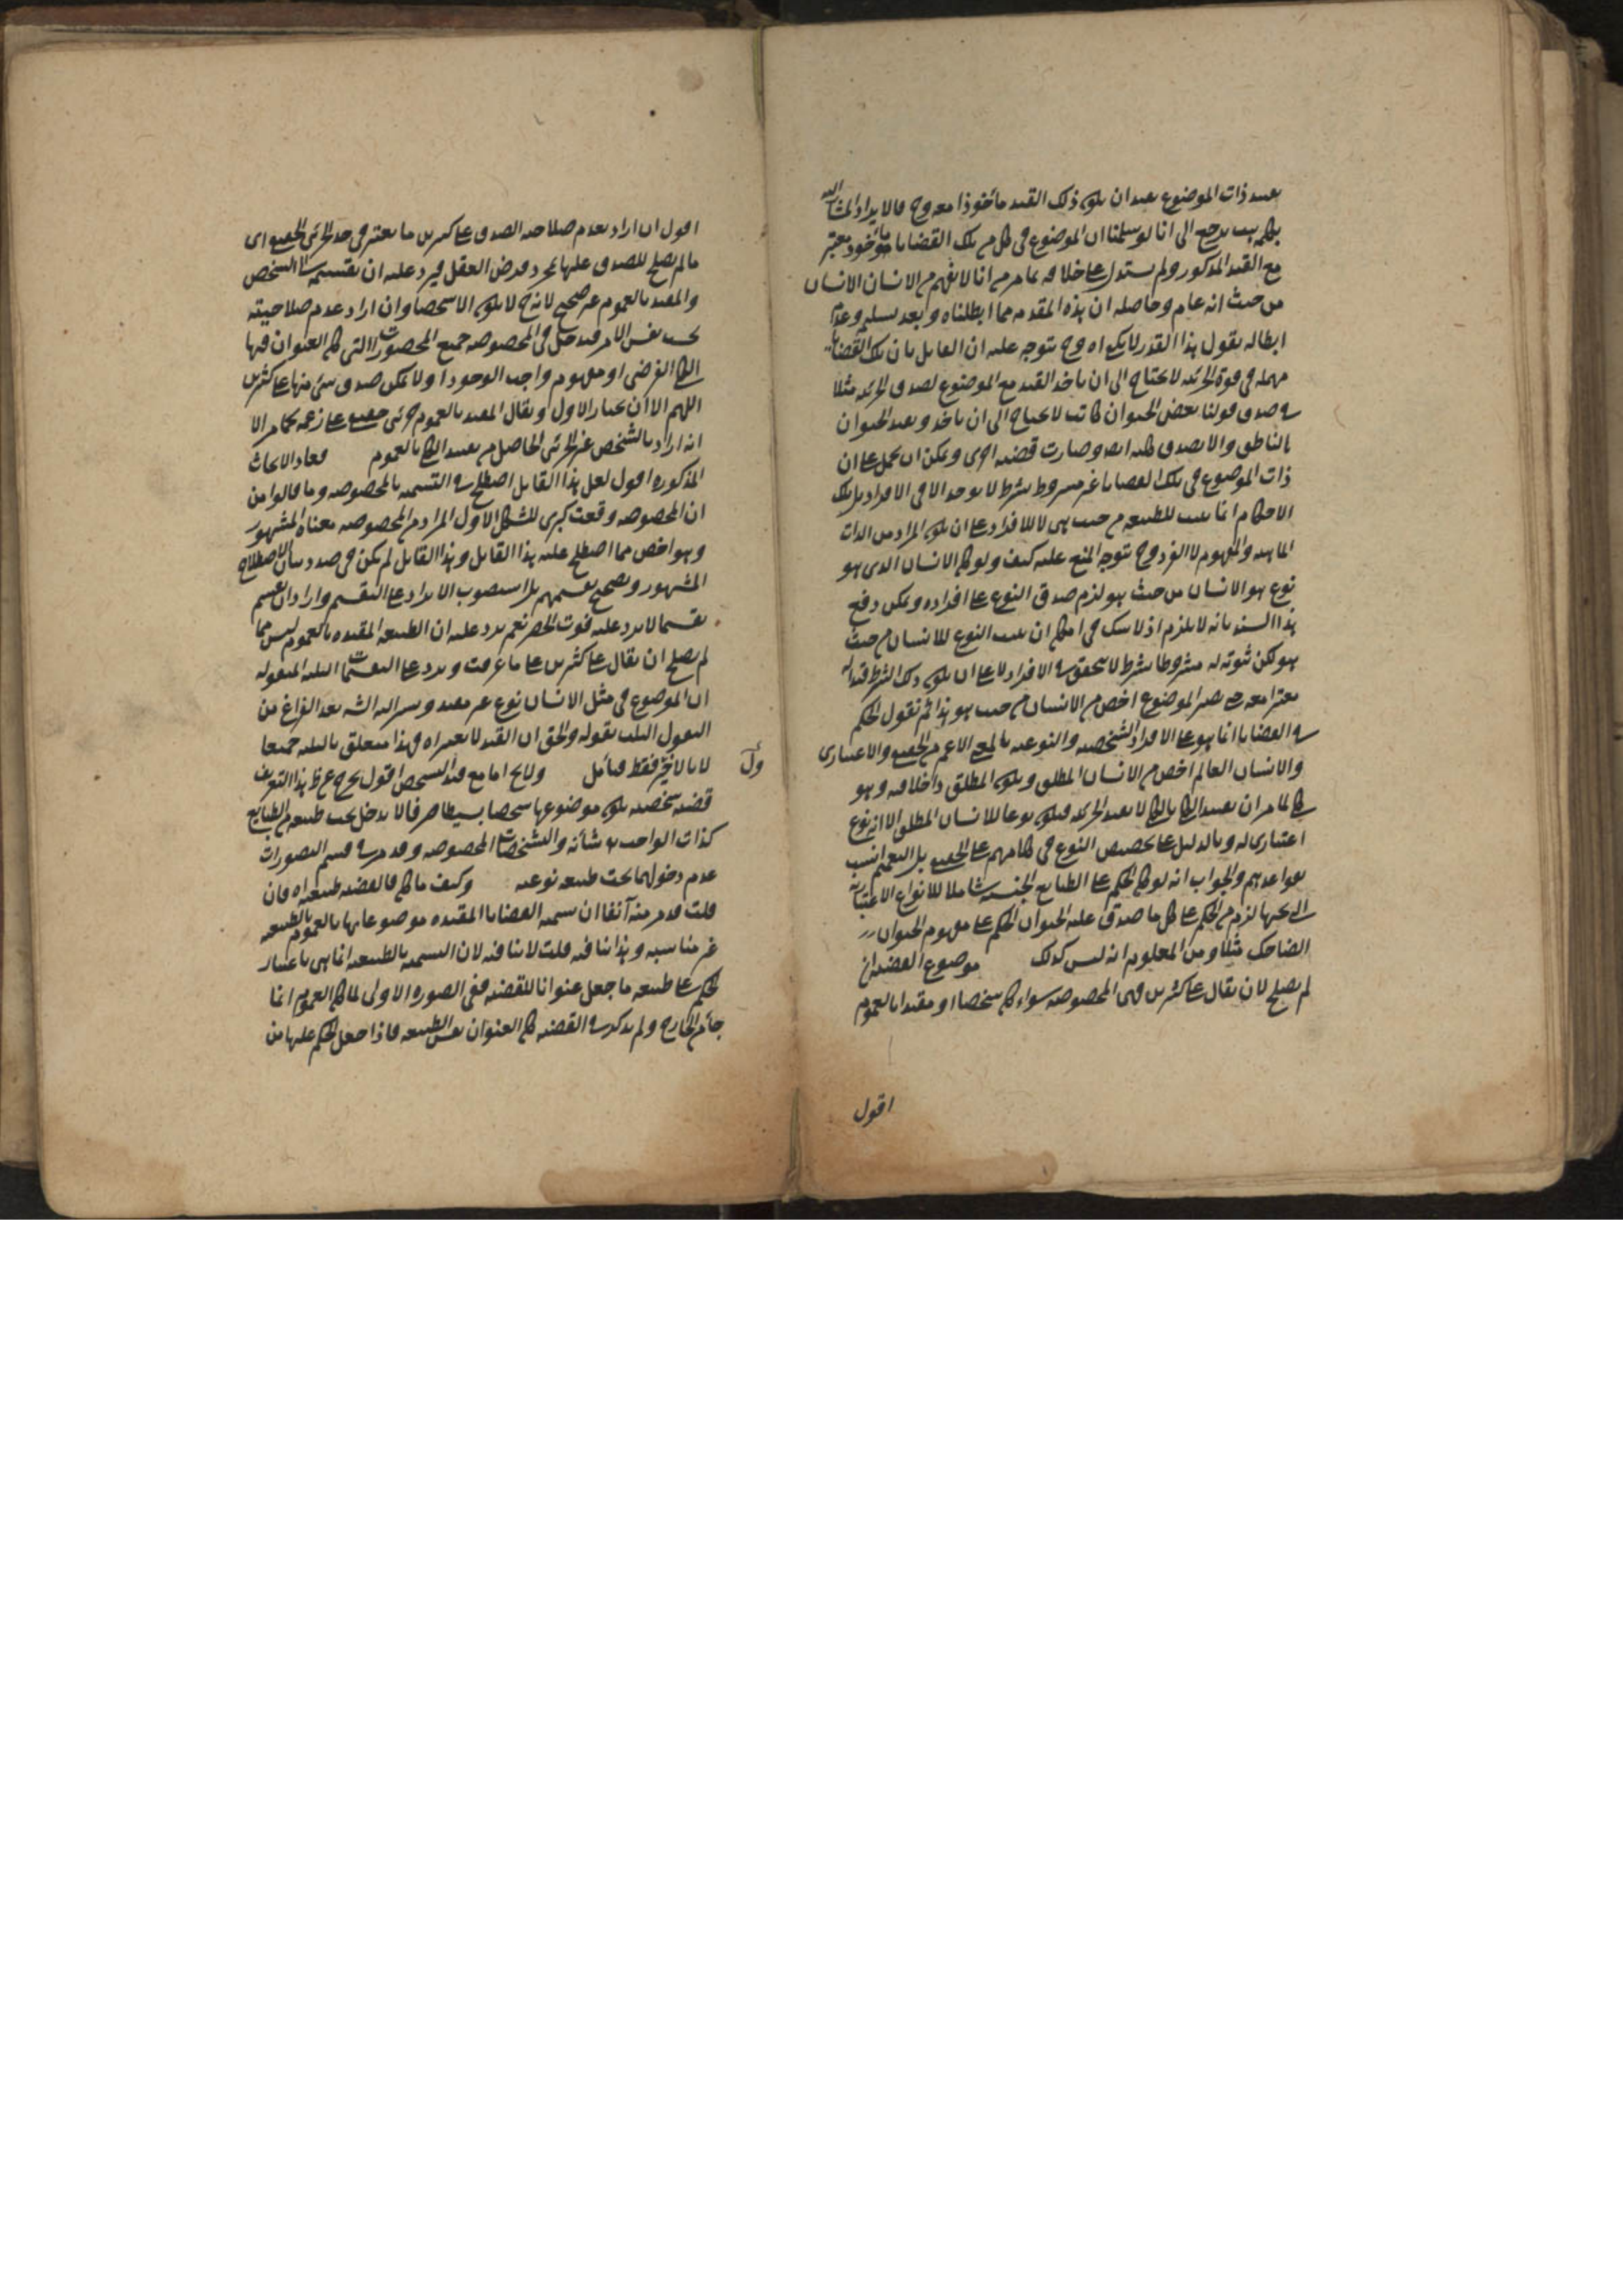 بقيد ذات الموضوع بعد ان يكون ذلك القيد مأخوذا معه وح فالايراد المشار اليه
يرجع الى انا لو سلمنا ان الموضوع في كل من تلك القضايا مأخوذ معتبر
مع القيد المذكور ولم يستدل على خلافه بما مر من انا لا نفهم من الانسان الانسان
من حيث انه عام وحاصله ان هذه المقدمة مما ابطلناه وبعد تسليمه وعدم
ابطاله نقول هذا القدر لا يكفي اه وح يتوجه عليه ان القايل بان تلك القضايا
مهملة في قوة الجزئية لا يحتاج الى ان ياخذ القيد مع الموضوع لصدق الجزئية مثلا
في صدق قولنا بعض الحيوان كاتب لا يحتاج الى ان ياخذ ويقيد الحيوان
بالناطق والا لصدق كلية ايضا وصارت قضية اخرى ويمكن ان يحمل على ان
ذات الموضوع في تلك القضايا غير مشروط بشرط لا يوجد الا في الافراد بل تلك
الاحكام انما يثبت للطبيعة من حيث هي لا للافراد على ان يكون المراد من الذات
الماهية والمفهوم لا الفرد وح يتوجه المنع عليه كيف ولو كان الانسان الذي هو
نوع هو الانسان من حيث هو لزم صدق النوع على افراده ويمكن دفع
هذا السند بانه لا يلزم اذ لا شك في امكان ان يثبت النوع للانسان من حيث
هو لكن ثبوته له مشروطا بشرط لا يتحقق في الافراد لا على ان يكون ذلك الشرط قيدا له
معتبرا معه حتى يصير الموضوع اخص من الانسان من حيث هو هذا ثم نقول الحكم
في القضايا انما هو على الافراد الشخصية والنوعية بالمعنى الاعم من الحقيقي والاعتباري
والانسان العام اخص من الانسان المطلق ويكون المطلق داخلا فيه وهو
كلي لما مر ان تقييد الكلي بالكلي لا يفيد الجزئية فيكون نوعا للانسان المطلق الا انه نوع
اعتباري له وبالدليل على تخصيص النوع في كلامهم على الحقيقي بل التعميم انسب
بقواعدهم والجواب انه لو كان الحكم على الطبايع الجنسية شاملا للانواع الاعتبارية
التي تحتها لزم من الحكم على كل ما صدق عليه الحيوان الحكم على مفهوم الحيوان
الضاحك مثلا ومن المعلوم انه ليس كذلك موضوع القضية ان
لم يصلح لان يقال على كثيرين فهي المخصوصة سواء كان شخصا او مقيدا بالعموم
اقول
اقول ان اراد بعدم صلاحية الصدق على كثيرين ما يعتبر في حد الجزئي الحقيقي اى
ما لم يصلح للصدق عليها بمجرد فرض العقل فيرد عليه ان تقسيمه الى الشخص
والمقيد بالعموم غير صحيح لانه ح لا يكون الا شخصا وان اراد عدم صلاحيته
بحسب نفس الامر فيدخل في المخصوصة جميع المحصورات التي كان العنوان فيها
الكلي الفرضي او مفهوم واجب الوجود اذ لا يمكن صدق شئ منها على كثيرين
اللهم الا ان يختار الاول ويقال المقيد بالعموم جزئي حقيقي على زعمه كما مر الا
انه اراد بالشخص غير الجزئي الحاصل من تقييد الكلي بالعموم فعاد الابحاث
المذكورة اقول لعل هذا القايل اصطلح في التسمية بالمخصوصة وما قالوا من
ان المخصوصة وقعت كبرى للشكل الاول المراد من المخصوصة معناه المشهور
وهو اخص مما اصطلح عليه هذا القايل وهذا القايل لم يكن في صدد بيان الاصطلاح
المشهور وتصحيح تقسيمهم بل استصوب الايراد على التقسيم واراد ان يقسم
تقسيما لا يرد عليه فوت الحصر نعم يرد عليه ان الطبيعة المقيدة بالعموم ليس مما
لم يصلح ان يقال على كثيرين على ما عرفت ويرد على التقسيمات الثلثة المنقولة
ان الموضوع في مثل الانسان نوع غير مقيد وسيراليه الشه بعد الفراغ من
النقول الثلث بقوله والحق ان القيد لا يعتبر اه فهذا متعلق بالثلثة جميعا
لا بالاخير فقط فتأمل ولايح اما مع قيد الشخص اقول يخرج عن ظ هذا التعريف
قضية شخصية يكون موضوعها شخصا بسيطا صرفا لا يدخل تحت طبيعة من الطبايع
كذات الواجب تع شأنه والتشخصات المخصوصة وقد مر في قسم التصورات
عدم دخولهما تحت طبيعة نوعية وكيف ما كان فالقضية طبيعية اه فان
قلت قد مر منه آنفا ان تسمية القضايا المقيدة موضوعاتها بالعموم بالطبيعية
غير مناسبة وهذا ينافيه قلت لا ينافيه لان التسمية بالطبيعية انما هي باعتبار
الحكم على طبيعة ما جعل عنوانا للقضية ففي الصورة الاولى لما كان العموم انما
جاء من الخارج ولم يذكر في القضية كان العنوان نفس الطبيعة فاذا جعل الحكم عليها من